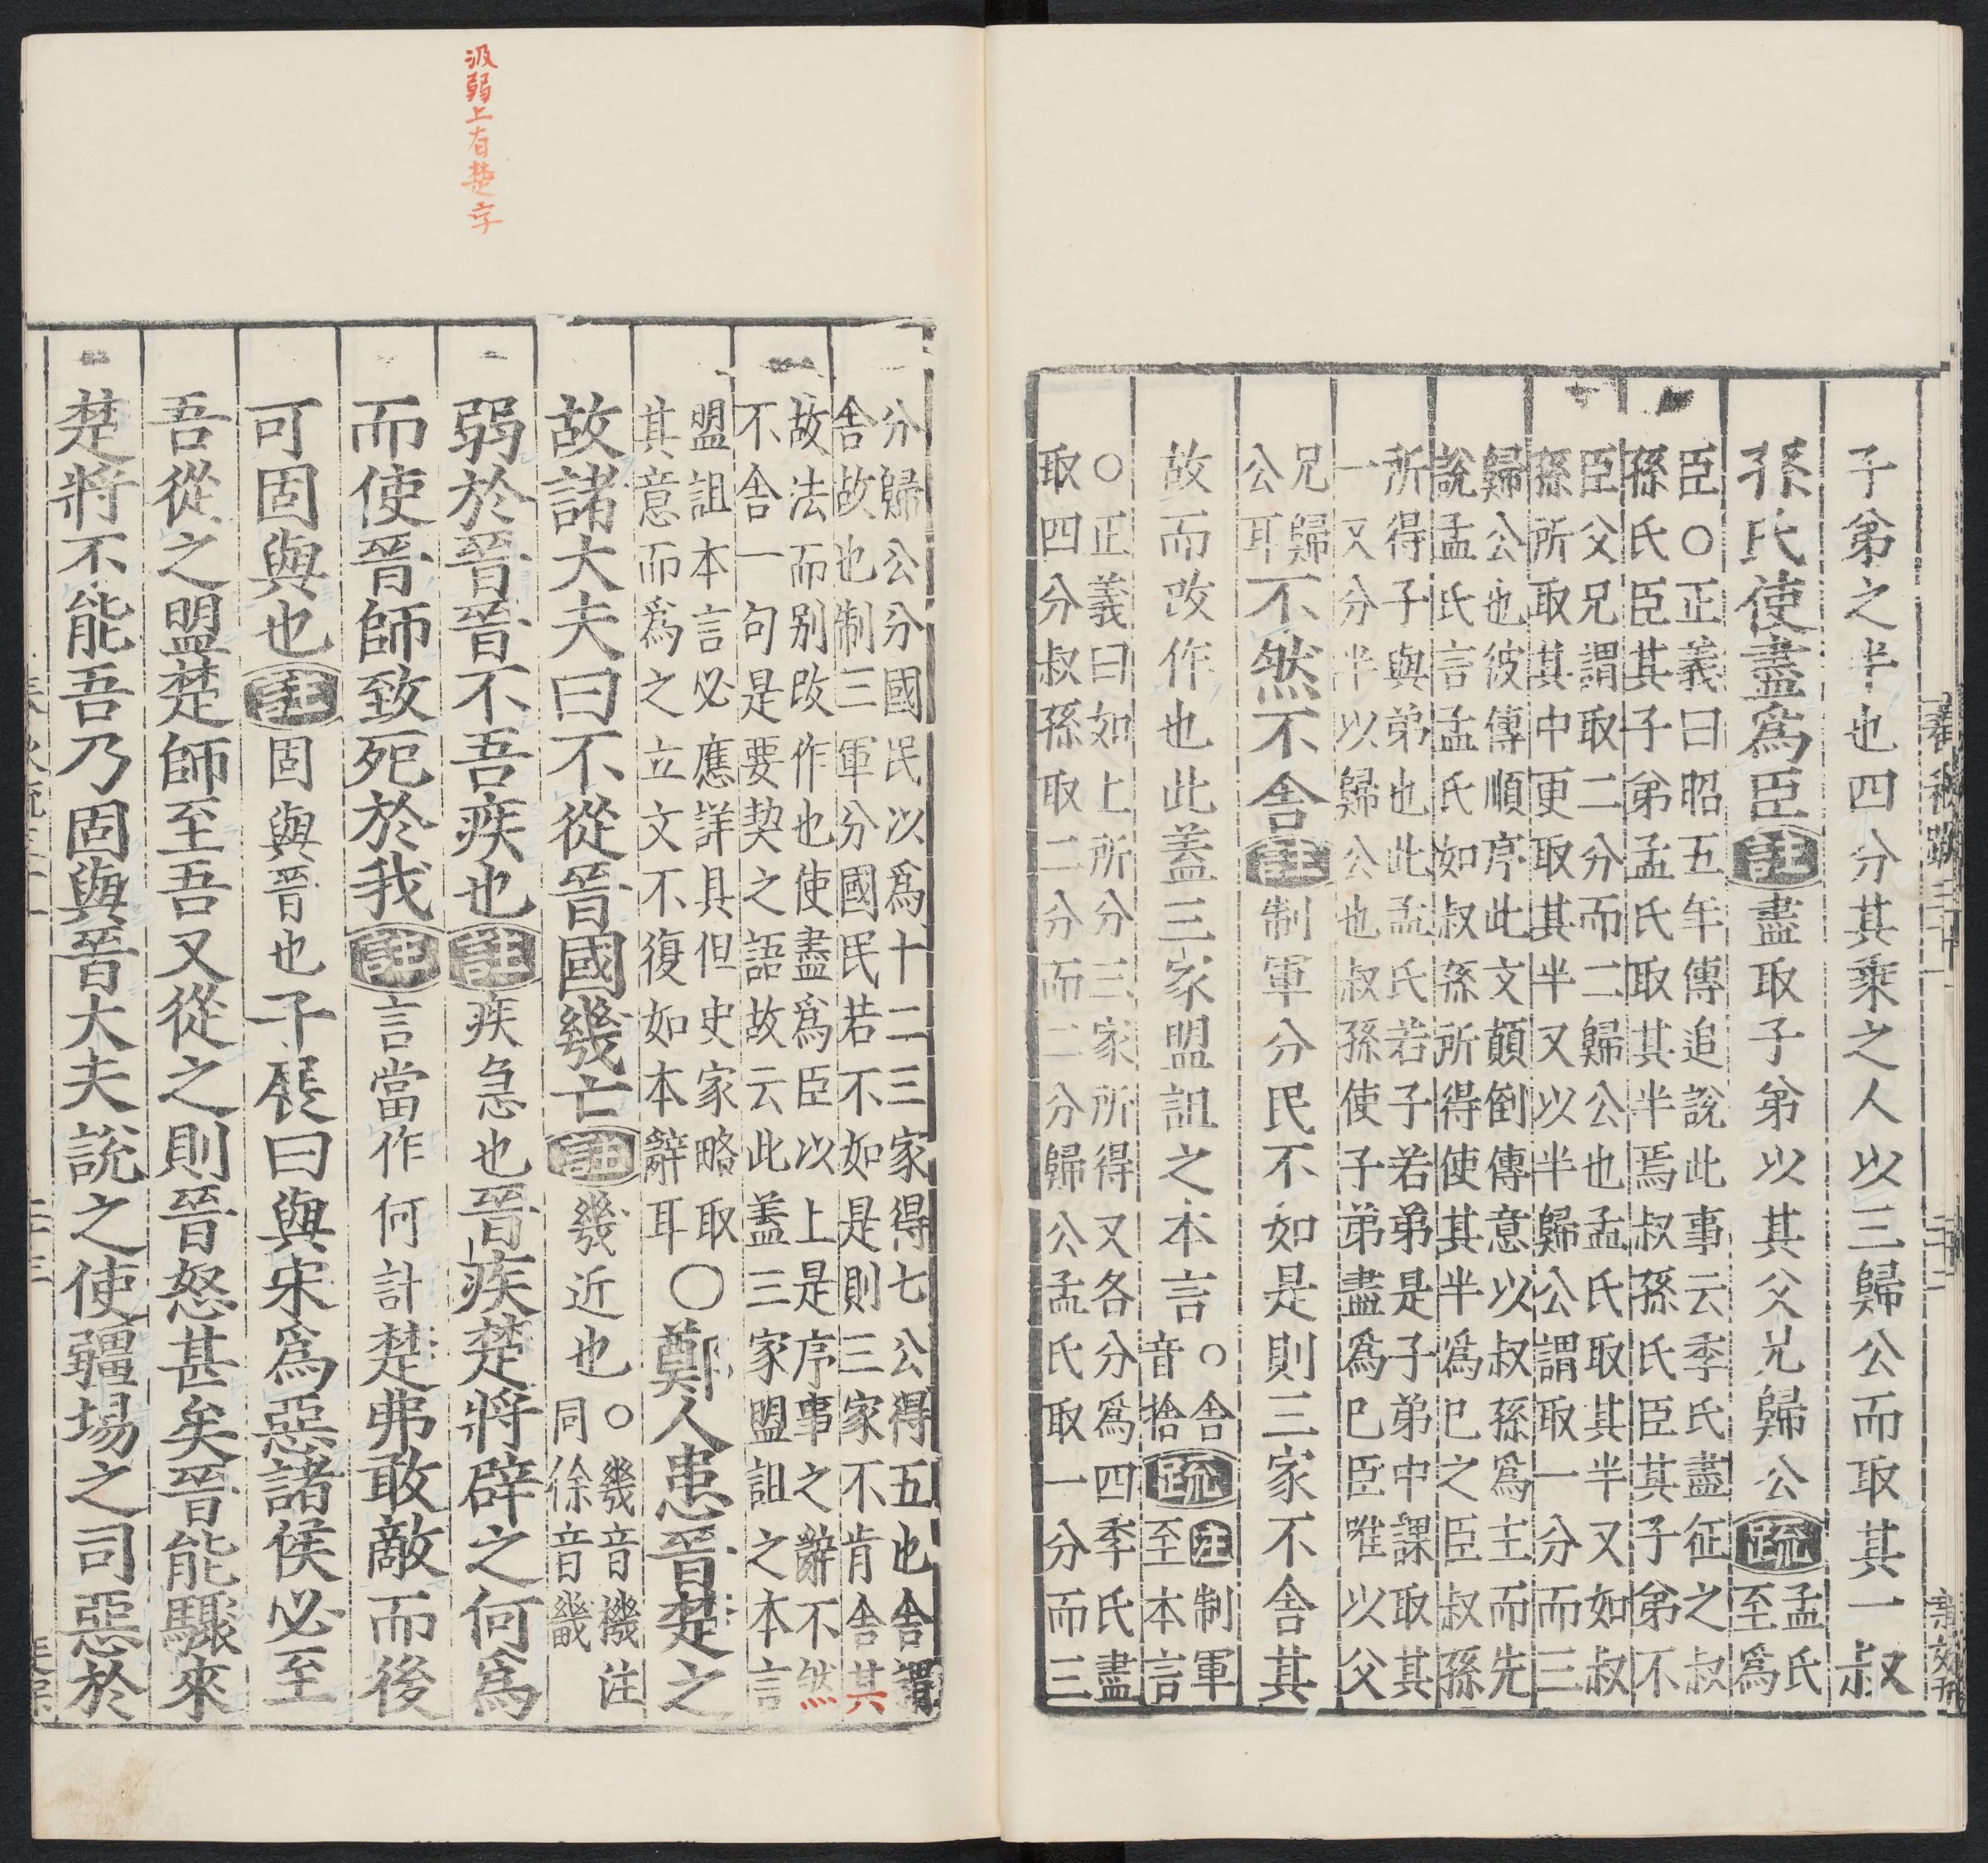 子弟之半也四分其乘之人以三歸公而取其一叔
孫氏使盡爲臣註盡取子弟以其父兄歸公疏孟氏
至爲
臣○正義曰昭五年傳追說此事云季氏盡征之叔
孫氏臣其子弟孟氏取其半焉叔孫氏臣其子弟不
臣父兄謂取二分而二歸公也孟氏取其半又如叔
孫所取其中更取其半又以半歸公謂取一分而三
歸公也彼傳順序此文顛倒傳意以叔孫爲主而先
說孟氏言孟氏如叔孫所得使其半爲已之臣叔孫
所得子與弟也此孟氏若子若弟是子弟中課取其
一又分半以歸公也叔孫使子弟盡爲已臣唯以父
兄歸
公耳
不然不舍註制軍分民不如是則三家不舍其
故而改作也此蓋三家盟詛之本言○舍
音捨
疏注制軍
至本言
○正義曰如上所分三家所得又各分爲四季氏盡
取四分叔孫取二分而二分歸公孟氏取一分而三
汲弱上有楚字
分歸公分國民以爲十二三家得七公得五也舍謂
舍故也制三軍分國民若不如是則三家不肯舍其
故法而別改作也使盡爲臣以上是序事之辭不然
不舍一句是要契之語故云此蓋三家盟詛之本言
盟詛本言必應詳具但史家略取
其意而爲之立文不復如本辭耳
○鄭人患晉楚之
故諸大夫曰不從晉國幾亡註幾近也○幾音機注
同徐音畿
弱於晉晉不吾疾也註疾急也晉疾楚將辟之何爲
而使晉師致死於我註言當作何計楚弗敢敵而後
可固與也註固與晉也子展曰與宋爲惡諸侯必至
吾從之盟楚師至吾又從之則晉怒甚矣晉能驟來
楚將不能吾乃固與晉大夫說之使疆埸之司惡於